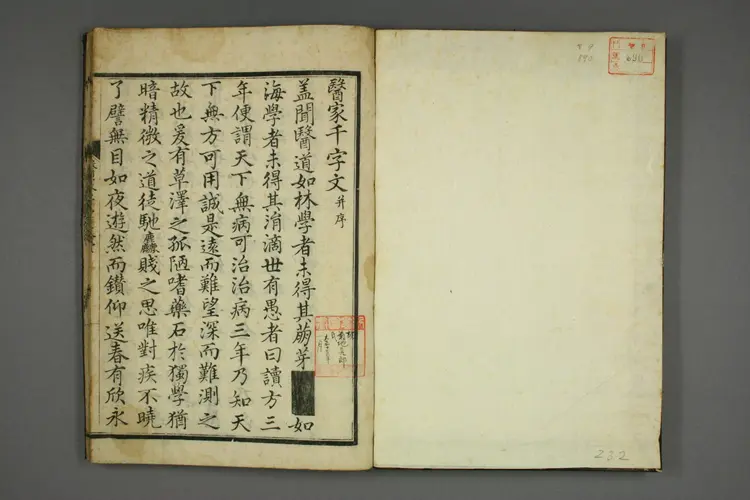 醫家千字文 并序
盖聞醫道如林學者未得其萠芽 如
海學者未得其涓滴世有愚者曰讀方三
年便謂天下無病可治治病三年乃知天
下無方可用誠是遠而難望深而難測之
故也爰有草澤之孤陋嗜藥石於獨學猶
暗精微之道徒馳麁賤之思唯對疾不曉
了譬無目如夜遊然而鑽仰送春有欣永
232